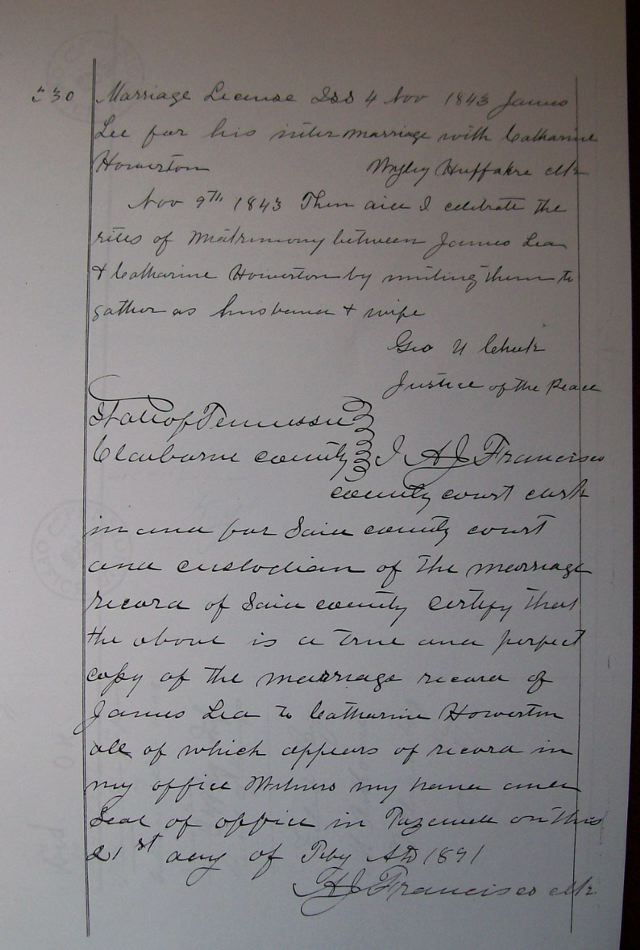 330 Marriage License Iss 4 Nov 1843 James
Lee for his inter marriage with Catharine
Howerton Wyley Huffakre clk
Nov 9th 1843 Then did I celebrate the
rites of Matrimony between James Lea
& Catharine Howerton by uniting them to
gather as husband & wife
Geo U Cheek
Justice of the Peace
State of Tennessee
Claiborne county I H J Francisco
county court clerk
in and for Said county court
and custodian of the marriage
record of Said county certify that
the above is a true and perfect
copy of the marriage record of
James Lea to Catharine Howerton
all of which appears of record in
my office Witness my hand and
Seal of office in Tazewell on this
21st day of Feby AD 1891
H J Francisco clk